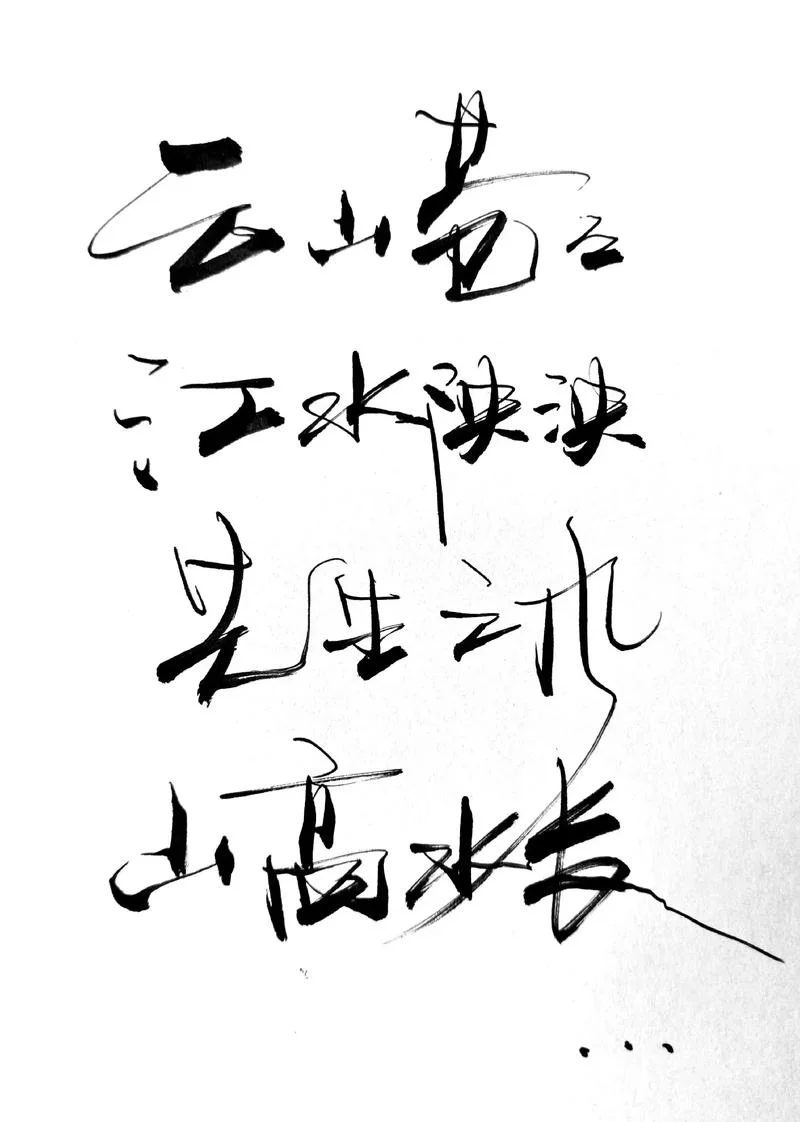 云山苍苍
江水泱泱
先生之风
山高水长
...